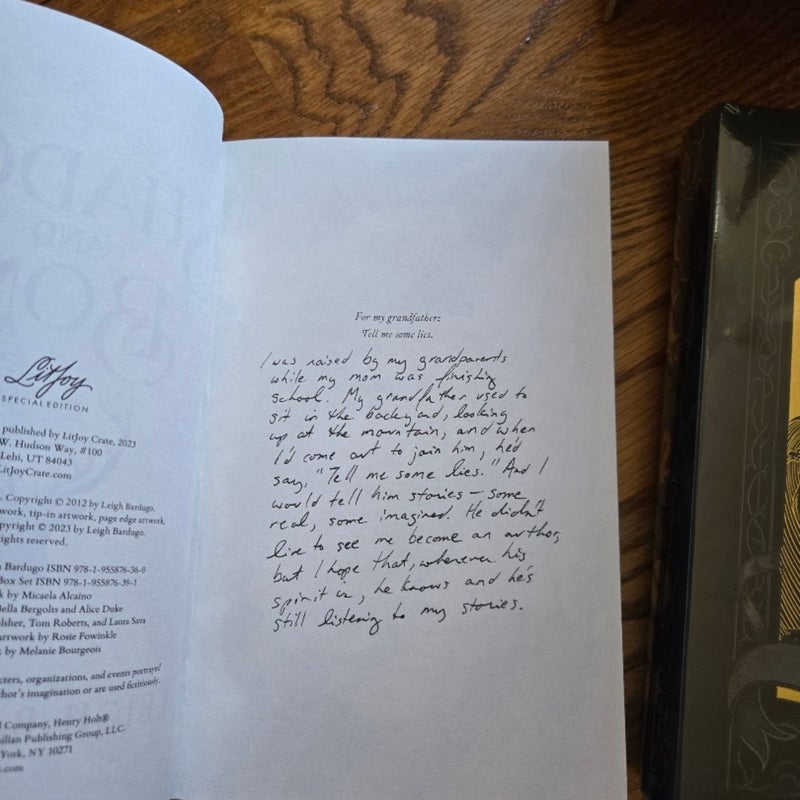 LitJoy
SPECIAL EDITION
published by LitJoy Crate, 2023
W. Hudson Way, #100
Lehi, UT 84043
LitJoyCrate.com
Copyright © 2012 by Leigh Bardugo.
work, tip-in artwork, page edge artwork,
copyright © 2023 by Leigh Bardugo.
rights reserved.
Bardugo ISBN 978-1-955876-36-0
Box Set ISBN 978-1-955876-39-1
by Micaela Alcaino
Bella Bergolts and Alice Duke
Tom Roberts, and Laura Sava
artwork by Rosie Fowinkle
by Melanie Bourgeois
organizations, and events portrayed
author's imagination or are used fictitiously.
Company, Henry Holt®
Publishing Group, LLC.
York, NY 10271
For my grandfather:
Tell me some lies.
I was raised by my grandparents
while my mom was finishing
school. My grandfather used to
sit in the backyard, looking
up at the mountain, and when
I'd come out to join him, he'd
say, "Tell me some lies." And I
would tell him stories – some
real, some imagined. He didn't
live to see me become an author,
but I hope that, wherever his
spirit is, he knows and he's
still listening to my stories.